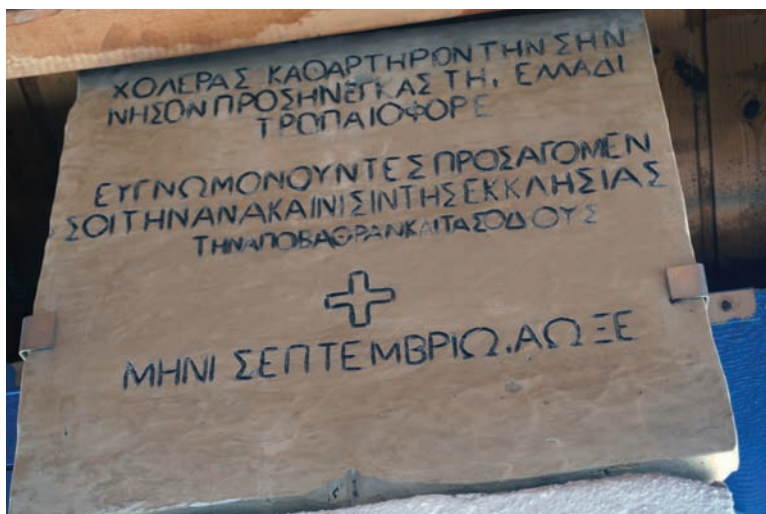 ΧΟΛΕΡΑΣ ΚΑΘΑΡΤΗΡΟΝ ΤΗΝ ΣΗΝ
ΝΗΣΟΝ ΠΡΟΣΗΝΕΓΚΑΣ ΤΗ. ΕΛΛΑΔΙ
ΤΡΟΠΑΙΟΦΟΡΕ
ΕΥΓΝΩΜΟΝΟΥΝΤΕΣ ΠΡΟΣΑΓΟΜΕΝ
ΣΟΙ ΤΗΝ ΑΝΑΚΑΙΝΙΣΙΝ ΤΗΣ ΕΚΚΛΗΣΙΑΣ
ΤΗΝ ΑΠΟΒΑΘΡΑΝ ΚΑΙ ΤΑΣ ΟΔΟΥΣ
ΜΗΝΙ ΣΕΠΤΕΜΒΡΙΩ. ΑΩΞΕ